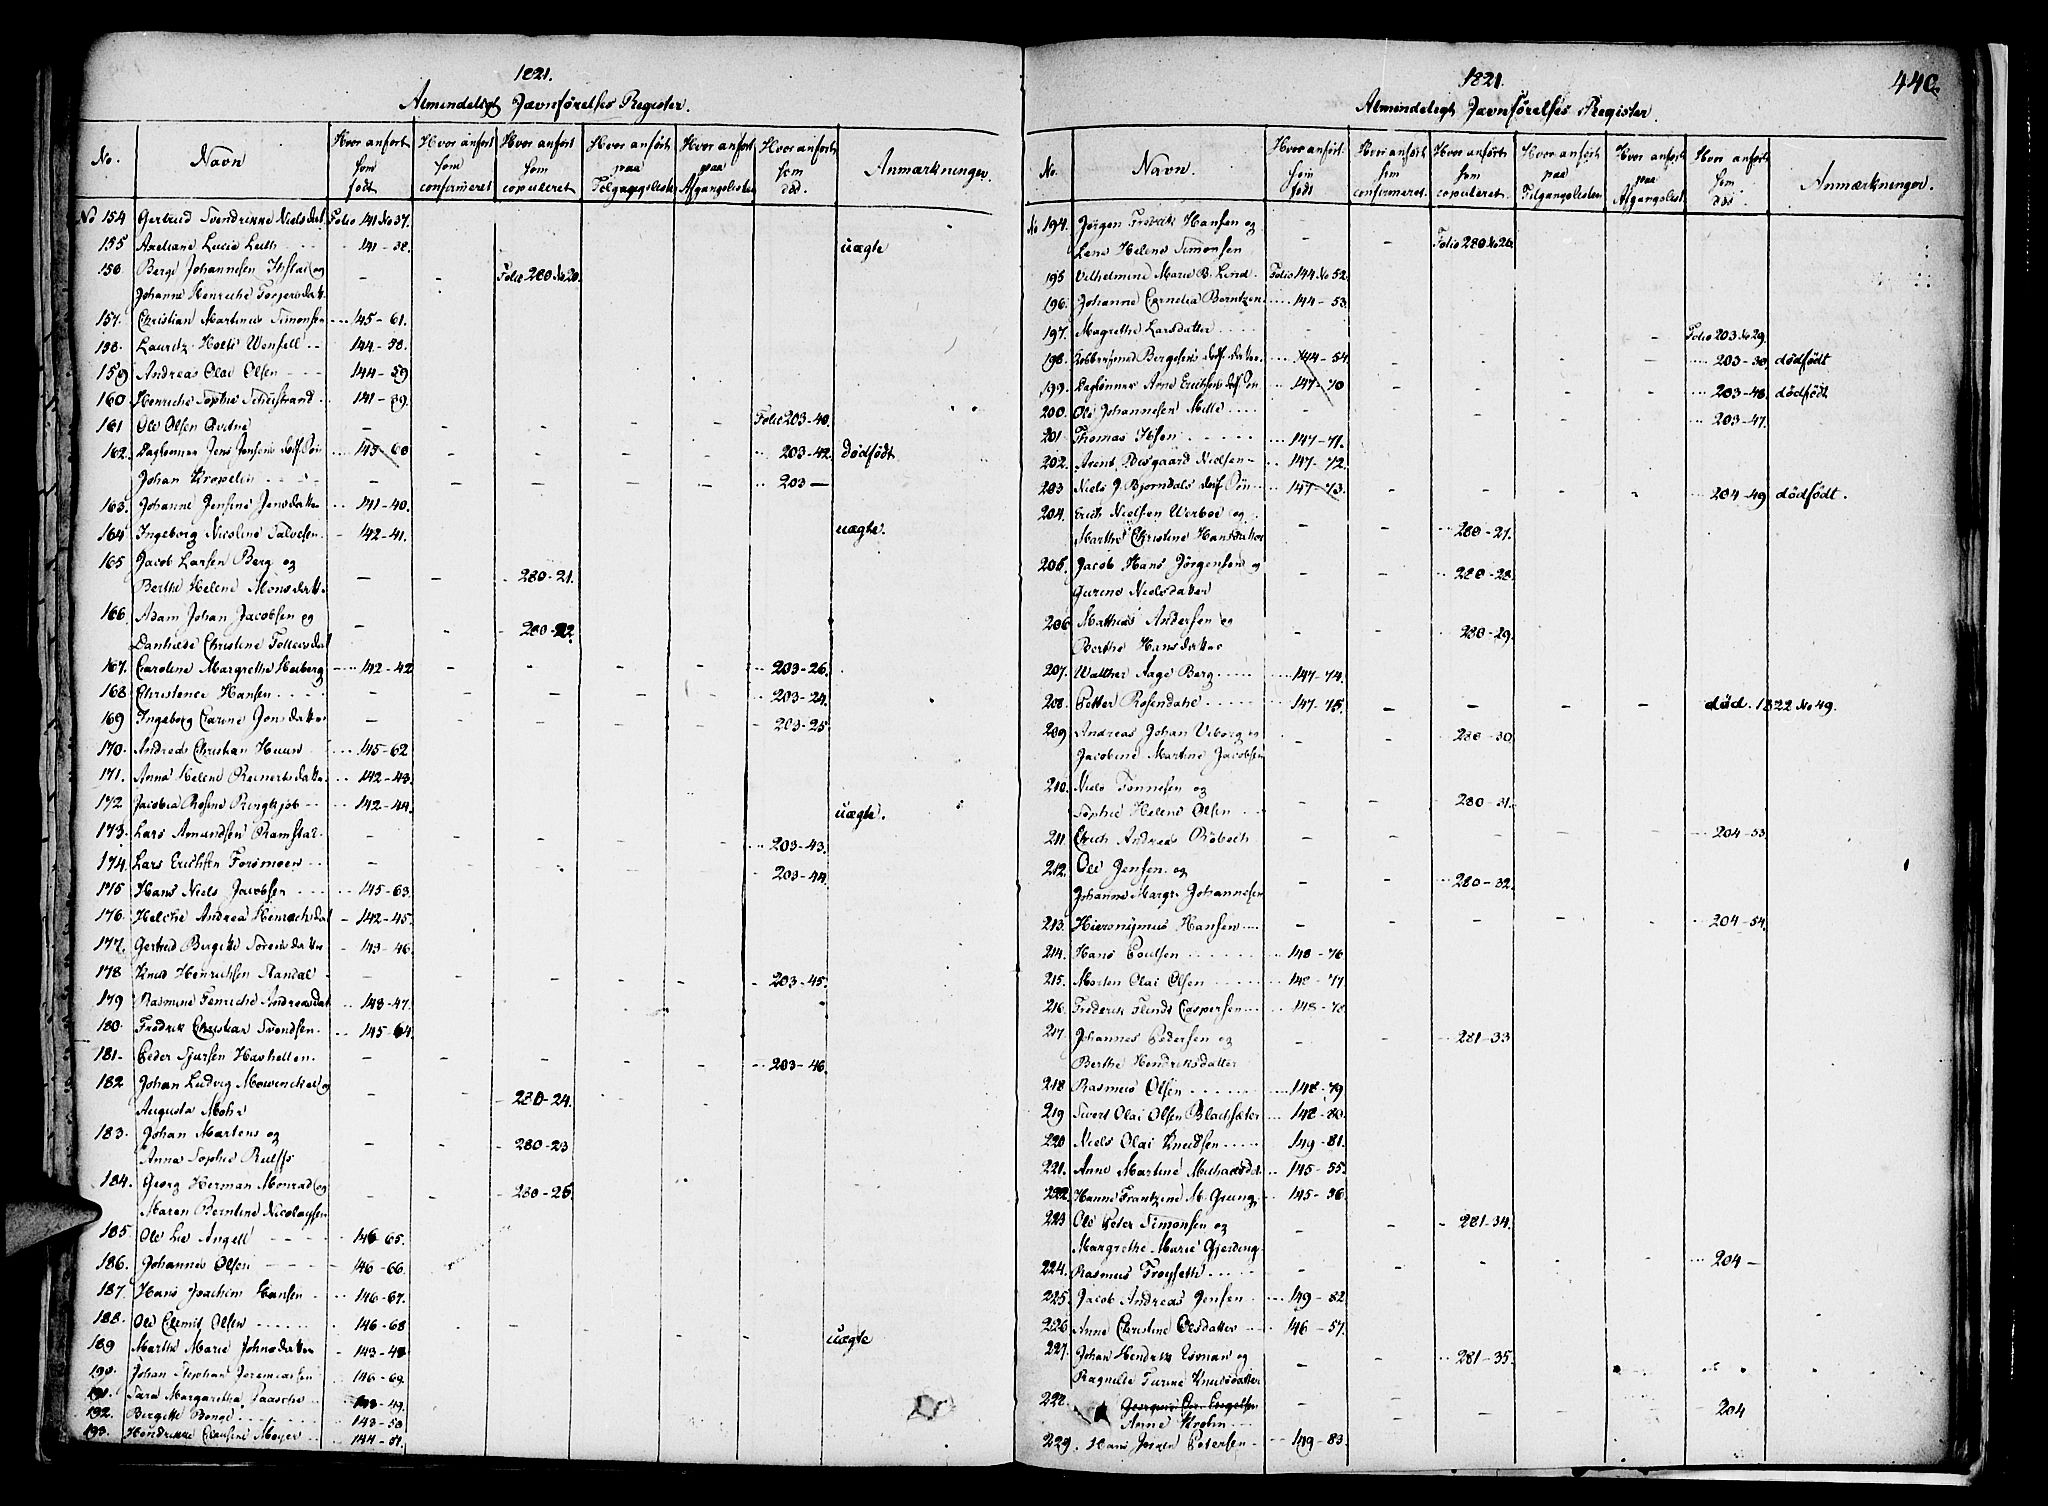 1821.
Almindeligt Jævnførelses Register.
No. Navn Hvor anført som født Hvor anført som confirmeret Hvor anført som copuleret Hvor anført paa Tilgangslisten Hvor anført paa Afgangslisten Hvor anført som død. Anmærkninger.
No 154 Gertrud Svendrikke Nielsdat. Folio 141 No 37.
155 Lucie 141 - 38. uægte
156. Berge Johannesen og - - Folio 280 No 20.
Johanne Henriche Torgersdatt.
157. Christian Martinus Simonsen 145 - 61.
158. Lauritz Holts Wensell 144 - 58.
159 Andreas Olai Olsen 144 - 59
160 Henriche Sophie 141 - 39.
161 Ole Olsen - - - - - Folio 203-40.
162. Dagleonner Jens Jensens dødf. Søn 145 - 60 - - - - 203-42. Dødfødt
Johan Kropelin - - - - - 203 -
163. Johanne Jensine Jensdatter 141 - 40.
164 Ingeborg Nicoline Salvesen 142 - 41. uægte.
165 Jacob Larsen Berg og
Berthe Helene Monsdatt. - - 280-21.
166 Adam Johan Jacobsen og
Danhilde Christine Tollevsdat - - 280-22.
167. Caroline Margrethe Heiberg 142-42 - - - - 203-26.
168 Christence Hansen - - - - - 203-24.
169 Ingeborg Carine Jonsdatter - - - - - 203-25.
170. Andreas Christian Huun 145-62
171. Anna Helene Reinertsdatte. 142-43.
172 Jacobia Rosine Ringkjøb 142-44. uægte.
173. Lars Amundsen Ramstad - - - - - 203-43.
174. Lars Erichsen Forsmoen - 203-44.
175 Hans Niels Jacobsen 145-63.
176. Helche Andrea Henrichsdat 142-45.
177. Gertrud Bergitte Sørensdatter 143-46.
178 Knud Henrichsen Randal - - - - - 203-45.
179 Rasmine Henriche Andreasdat 143-47.
180. Fredrik Christian Svendsen. 145-64.
181- Peder Sjursen Havhellen. - - - - - 203-46.
182 Johan Ludvig Mowinckel og
Augusta Mohr - - 280-24.
183. Johan Martens og
Anna Sophie Rulffs - - 280-23
184. Georg Herman Monrad og
Maren Berntine Nicolaysen - - 280-25.
185. Ole Lie Angell 146-65.
186. Johannes Olsen 146-66.
187. Hans Joachim Hansen 146-67.
188. Ole Clemit Olsen 146-68
189 Marthe Marie Johnsdatter 143-48 uægte
190. Johan Stephan Jeremiassen 146-69.
191. Sara Margaretha Paasche 143-49.
192. Bergitte Bonge 143-50
193. Hendrikke Clausine Meyer 144-51.
1821. 440.
Almindeligt Jævnførelses Register.
No. Navn. Hvor anført som født Hvor anført som confirmeret. Hvor anført som copuleret. Hvor anført paa Tilgangslisten Hvor anført paa Afgangslist. Hvor anført som død. Anmærkninger.
No 194. Jørgen Fredrik Hansen og
Lene Helene Simonsen - - Folio 280 No 26.
195 Vilhelmine Marie B. Lind. Folio 144 No 52.
196. Johanne Cornelia Berntzen 144-53.
197. Magrethe Larsdatter - Folio 203 No 29.
198. Bergesens dødf. datter 144-54. 203-30. dødfødt
199. Dagleonner Arne Erichsens dødf. Søn 147-70 203-48. dødfødt
200. Ole Johannesen Mitte 203-47.
201 Thomas Ibsen 147-71.
202. Arent Besgaard Nielsen 147-72.
203 Niels J. Bjørndals dødf. Søn 147-73. 204-49 dødfødt.
204. Erich Nielsen Werboe og
Marthe Christine Hansdatter - - 280-27.
205. Jacob Hans Jørgensen og
Gurine Nielsdatter - - 280-28.
206. Mathias Andersen og
Berthe Hansdatter - - 280-29.
207. Walther Aage Berg 147-74.
208. Petter Rosendahl 147-75. - - - - død. 1822 No 49.
209 Andreas Johan Viborg og
Jacobine Martine Jacobsen - - 280-30.
210. Niels Tønnesen og
Sophie Helene Olsen - - 280-31.
211 Erich Andreas Røbech - 204-53.
212. Ole Jensen og
Johanne Margr. Johannesen - - 280-32.
213. Hieronymus Hansen - - - - - 204-54.
214. Hans Poulsen 148-76
215. Morten Olai Olsen 148-77
216. Frederik Flinds Caspersen 148-78
217 Johannes Pedersen og
Berthe Hendriksdatter - - 281-33
218 Rasmus Olsen 148-79
219 Sivert Olai Olsen Bladsæter 148-80.
220 Niels Olai Knudsen 149-81.
221. Anne Martine Michaelsdt. 145-55.
222. Hanne Frantzine M. Grung. 145-56.
223 Ole Peter Simonsen og
Margrethe Marie Gjerding. - - 281-34.
224. Rasmus Frøyseth - - - - - 204 -
225. Jacob Andreas Jensen 149-82
226 Anne Christine Olsdatter 146-57.
227. Johan Hendrik Esman og
Ragnilde Turine Knudsdatter - - 281-35.
228. Engelsen
Anne Krohn - - - - - 204
229. Hans Jørgen Petersen 149-83.